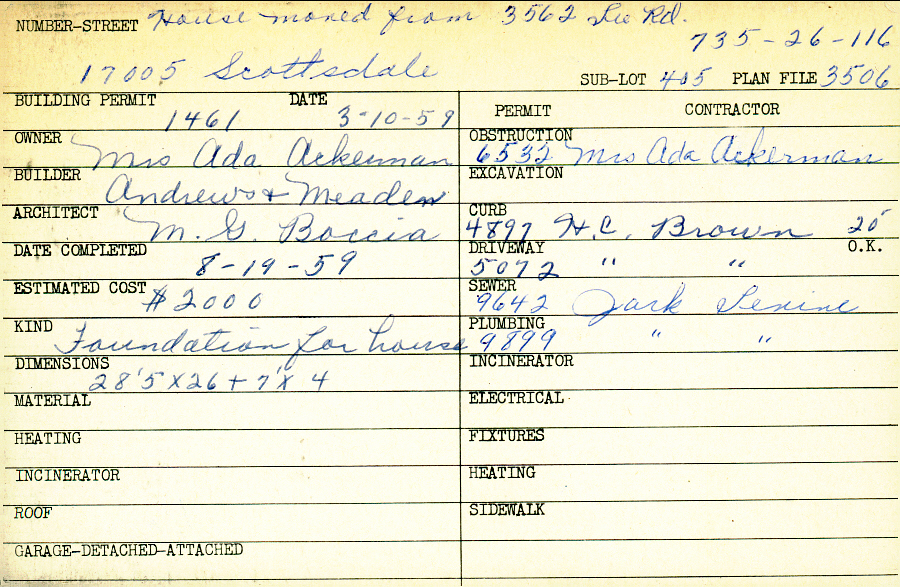 NUMBER-STREET House moved from 3562 Lee Rd.
735-26-116
17005 Scottsdale
SUB-LOT 405 PLAN FILE 3506
BUILDING PERMIT DATE
1461 3-10-59
PERMIT CONTRACTOR
OWNER Mrs Ada Ackerman
OBSTRUCTION
6532 Mrs Ada Ackerman
BUILDER Andrews + Meaden
EXCAVATION
ARCHITECT M. G. Boccia
CURB
4897 H.C. Brown 20'
DATE COMPLETED
8-19-59
DRIVEWAY O.K.
5072 " "
ESTIMATED COST $2000
SEWER
9642 Jack Levine
KIND Foundation for house
PLUMBING
9899 " "
DIMENSIONS
28'5 X 26 + 7' X 4
INCINERATOR
MATERIAL
ELECTRICAL
HEATING
FIXTURES
INCINERATOR
HEATING
ROOF
SIDEWALK
GARAGE-DETACHED-ATTACHED